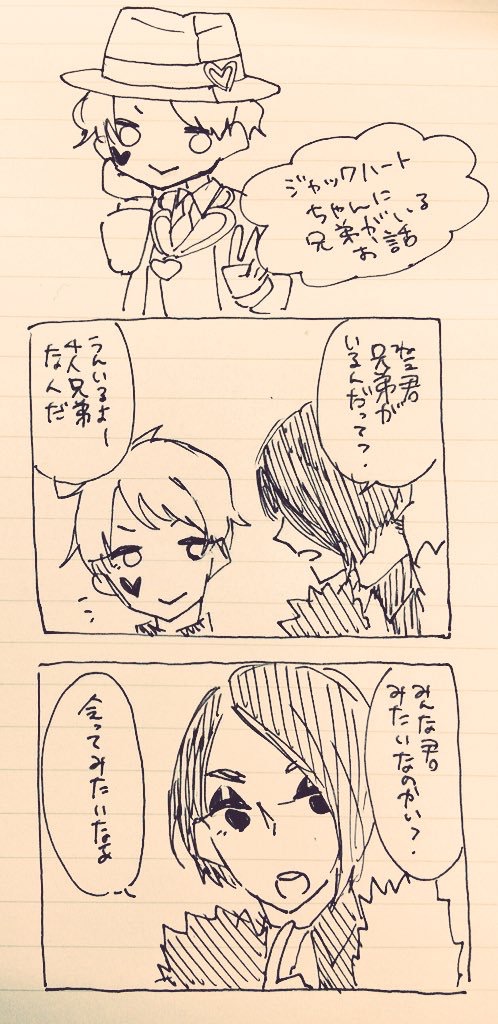 ジャックハート
ちゃんに
兄弟がいる
お話
兄弟が
いるんだって?
うんいるよー
4人兄弟
なんだ
みんな君
みたいなのかい?
会ってみたいなあ